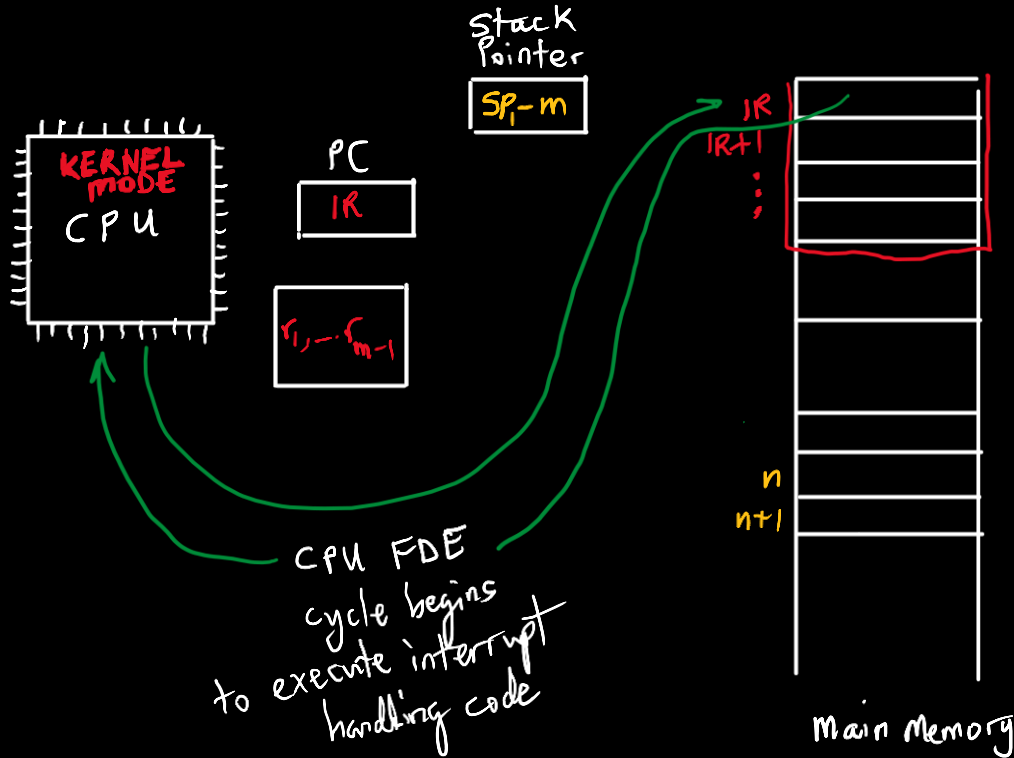 Stack
Pointer
SP₁-m
KERNEL
MODE
CPU
PC
IR
r₁,....rm-1
IR
IR+1
:
;
n
n+1
CPU FDE
cycle begins
to execute interrupt
handling code
Main Memory